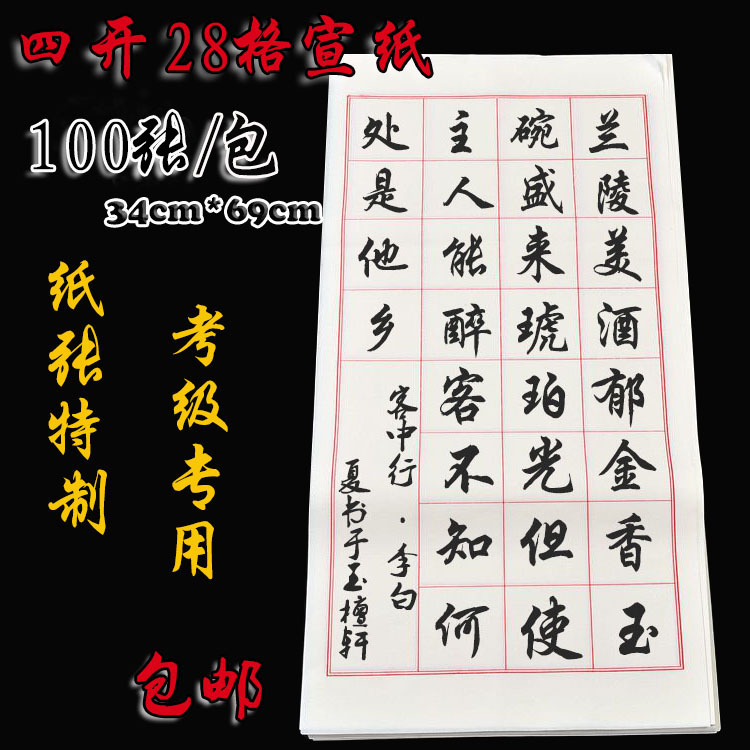 四开28格宣纸
100张/包
34cm*69cm
纸张特制
考级专用
包邮
兰陵美酒郁金香玉
碗盛来琥珀光但使
主人能醉客不知何
处是他乡
客中行·李白
夏书于玉檀轩